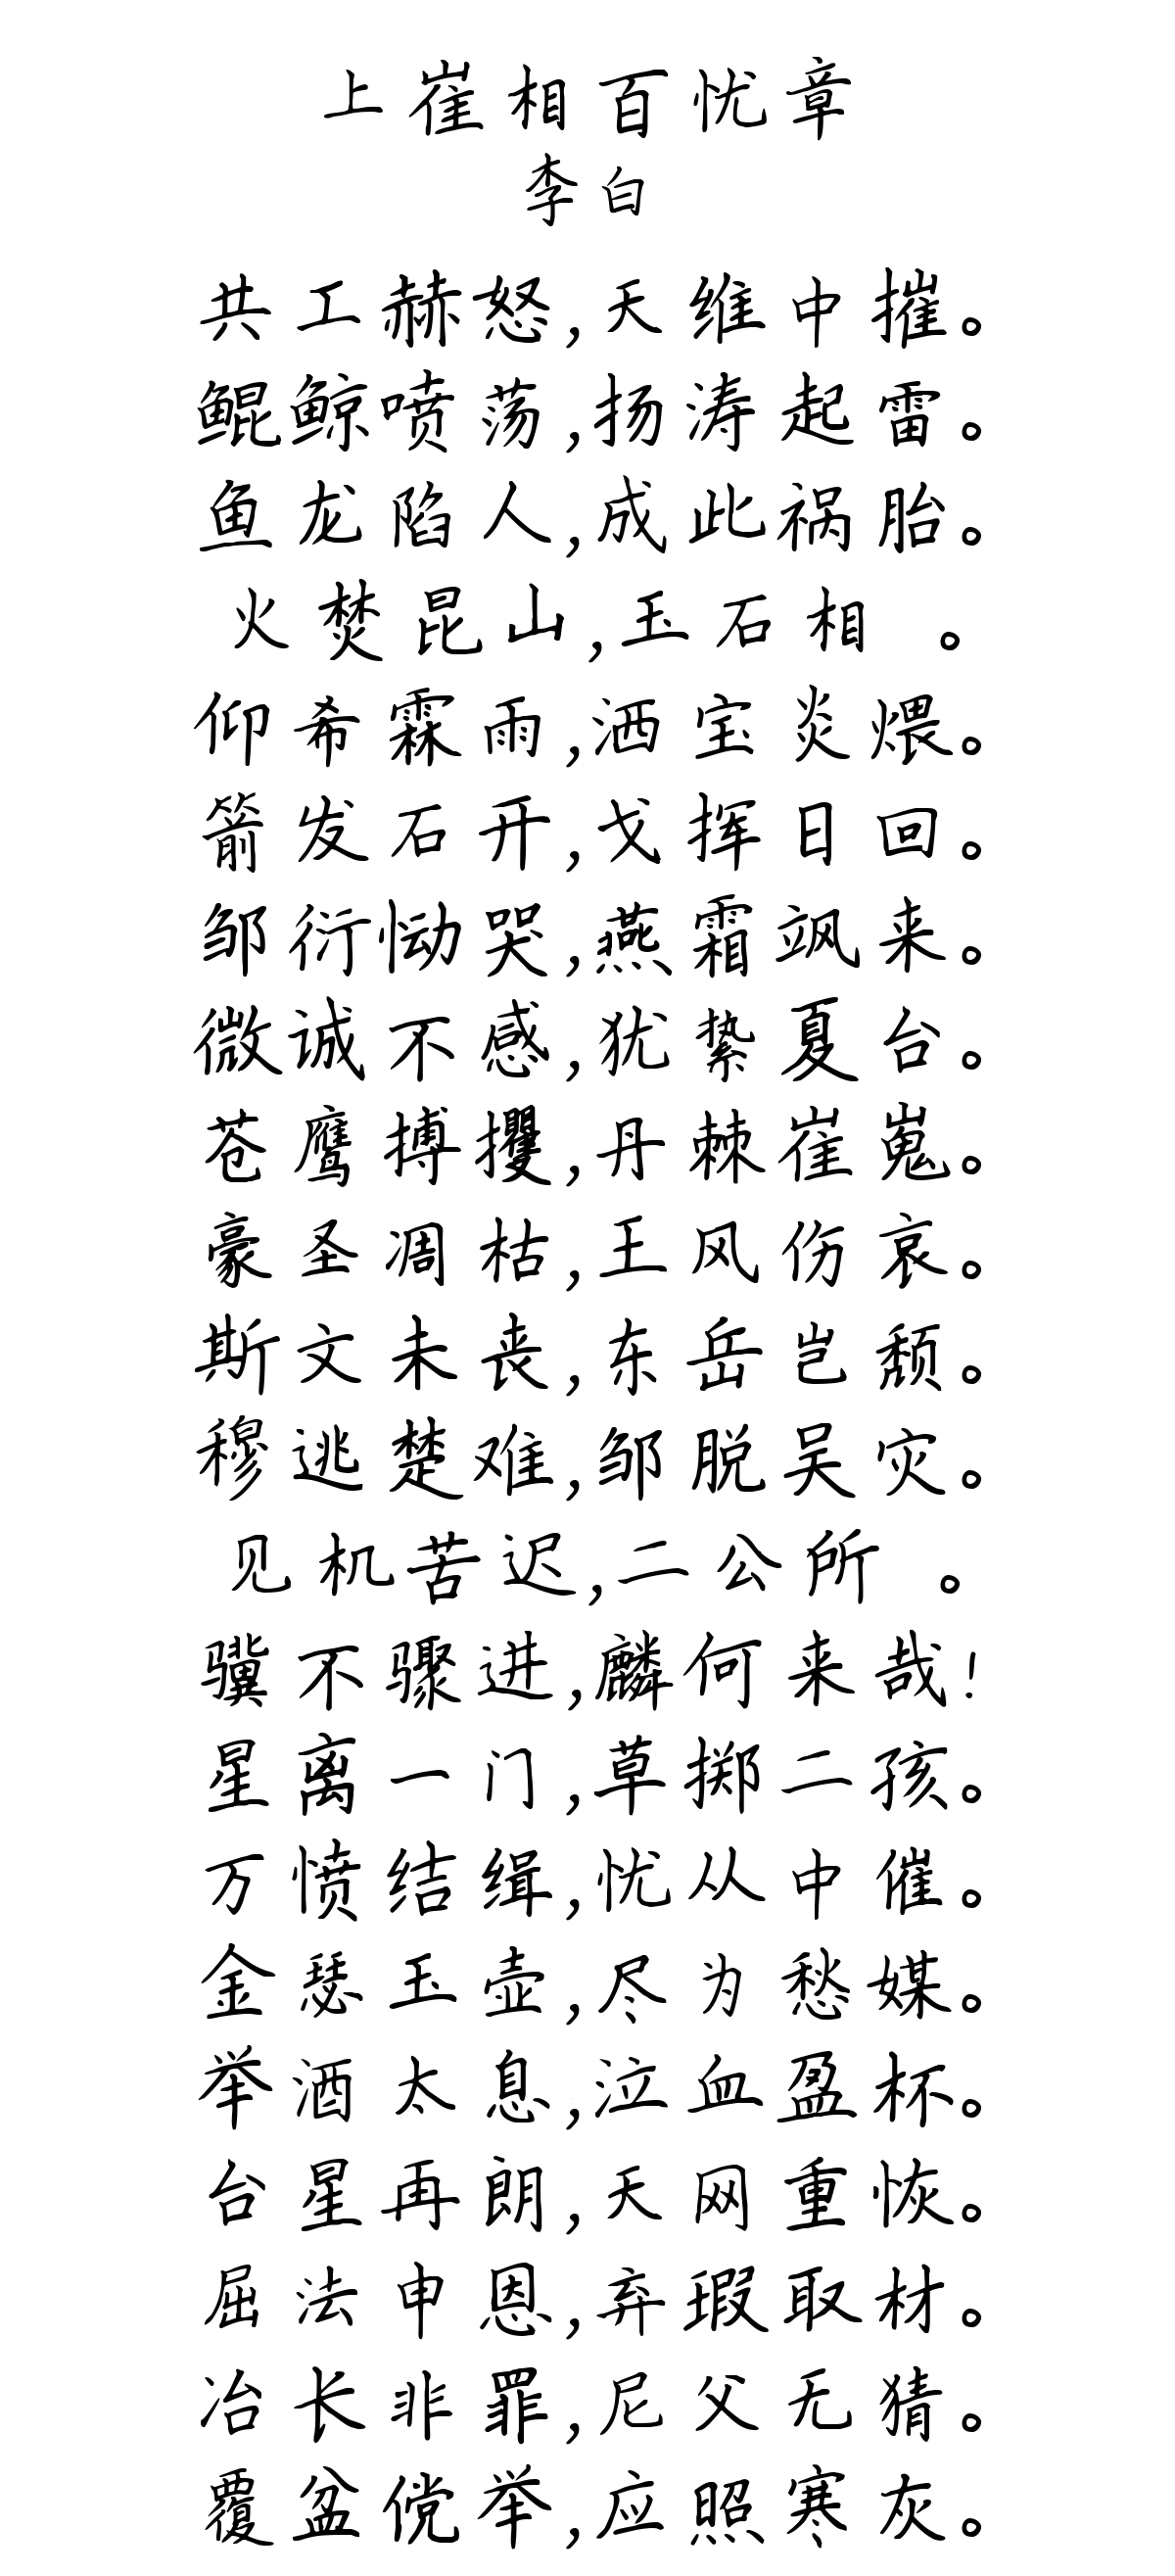 上崔相百忧章
李白
共工赫怒,天维中摧。
鲲鲸喷荡,扬涛起雷。
鱼龙陷人,成此祸胎。
火焚昆山,玉石相 。
仰希霖雨,洒宝炎煨。
箭发石开,戈挥日回。
邹衍恸哭,燕霜飒来。
微诚不感,犹絷夏台。
苍鹰搏攫,丹棘崔嵬。
豪圣凋枯,王风伤哀。
斯文未丧,东岳岂颓。
穆逃楚难,邹脱吴灾。
见机苦迟,二公所 。
骥不骤进,麟何来哉!
星离一门,草掷二孩。
万愤结缉,忧从中催。
金瑟玉壶,尽为愁媒。
举酒太息,泣血盈杯。
台星再朗,天网重恢。
屈法申恩,弃瑕取材。
冶长非罪,尼父无猜。
覆盆傥举,应照寒灰。